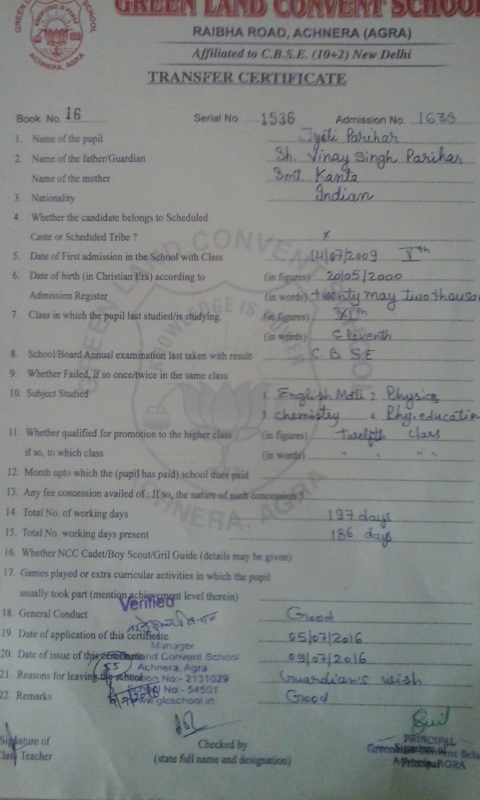 GREEN LAND CONVENT SCHOOL
RAIBHA ROAD, ACHNERA (AGRA)
Affiliated to C.B.S.E. (10+2) New Delhi
TRANSFER CERTIFICATE
Book. No 16 Serial No 1536 Admission No. 1635
1. Name of the pupil Jyoti Parihar
2. Name of the father/Guardian Sh. Vinay Singh Parihar
Name of the mother Smt. Kanta
3. Nationality Indian
4. Whether the candidate belongs to Scheduled
Caste or Scheduled Tribe ? x
5. Date of First admission in the School with Class 14/07/2009 Vth
6. Date of birth (in Christian Era) according to (in figures) 20/05/2000
Admission Register (in words) twenty may two thousan
7. Class in which the pupil last studied/is studying. (in figures) XIth
(in words) Eleventh
8. School/Board Annual examination last taken with result C B S E
9. Whether Failed, if so once/twice in the same class
10. Subject Studied 1. English Math 2. Physics
3. chemistry 4. Phy. education
11. Whether qualified for promotion to the higher class (in figures) twelfth class
if so, to which class (in words) " " "
12. Month upto which the (pupil has paid) school dues paid
13. Any fee concession availed of : If so, the nature of such concession
14. Total No. of working days 197 days
15. Total No. of working days present 186 days
16. Whether NCC Cadet/Boy Scout/Gril Guide (details may be given)
17. Games played or extra curricular activities in which the pupil
usually took part (mention achievement level therein)
Verified
18. General Conduct Good
19. Date of application of this certificate. 05/07/2016
Manager
20. Date of issue of this certificate 09/07/2016
and Convent School
Achnera, Agra
21. Reasons for leaving the school Guardian's wish
ion No:- 2131029
No:- 54501
22. Remarks Good
www.glcschool.in
Signature of Class Teacher
Checked by
(state full name and designation)
PRINCIPAL
Signature of
Principal
AGRA